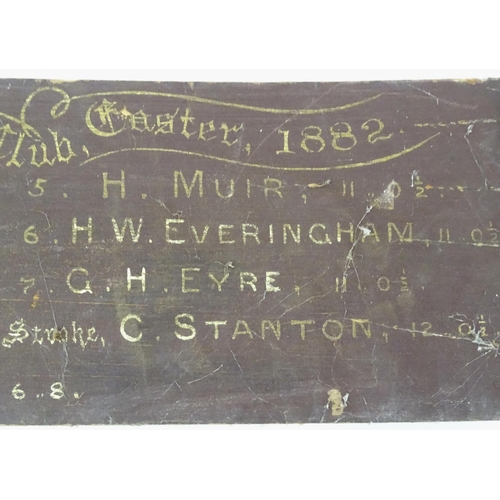 Club, Easter, 1882.
5. H. MUIR, 11. 0½
6. H. W. EVERINGHAM, 11. 0½
7. G. H. EYRE, 11. 0½.
Stroke, C. STANTON, 12. 0½
6..8.